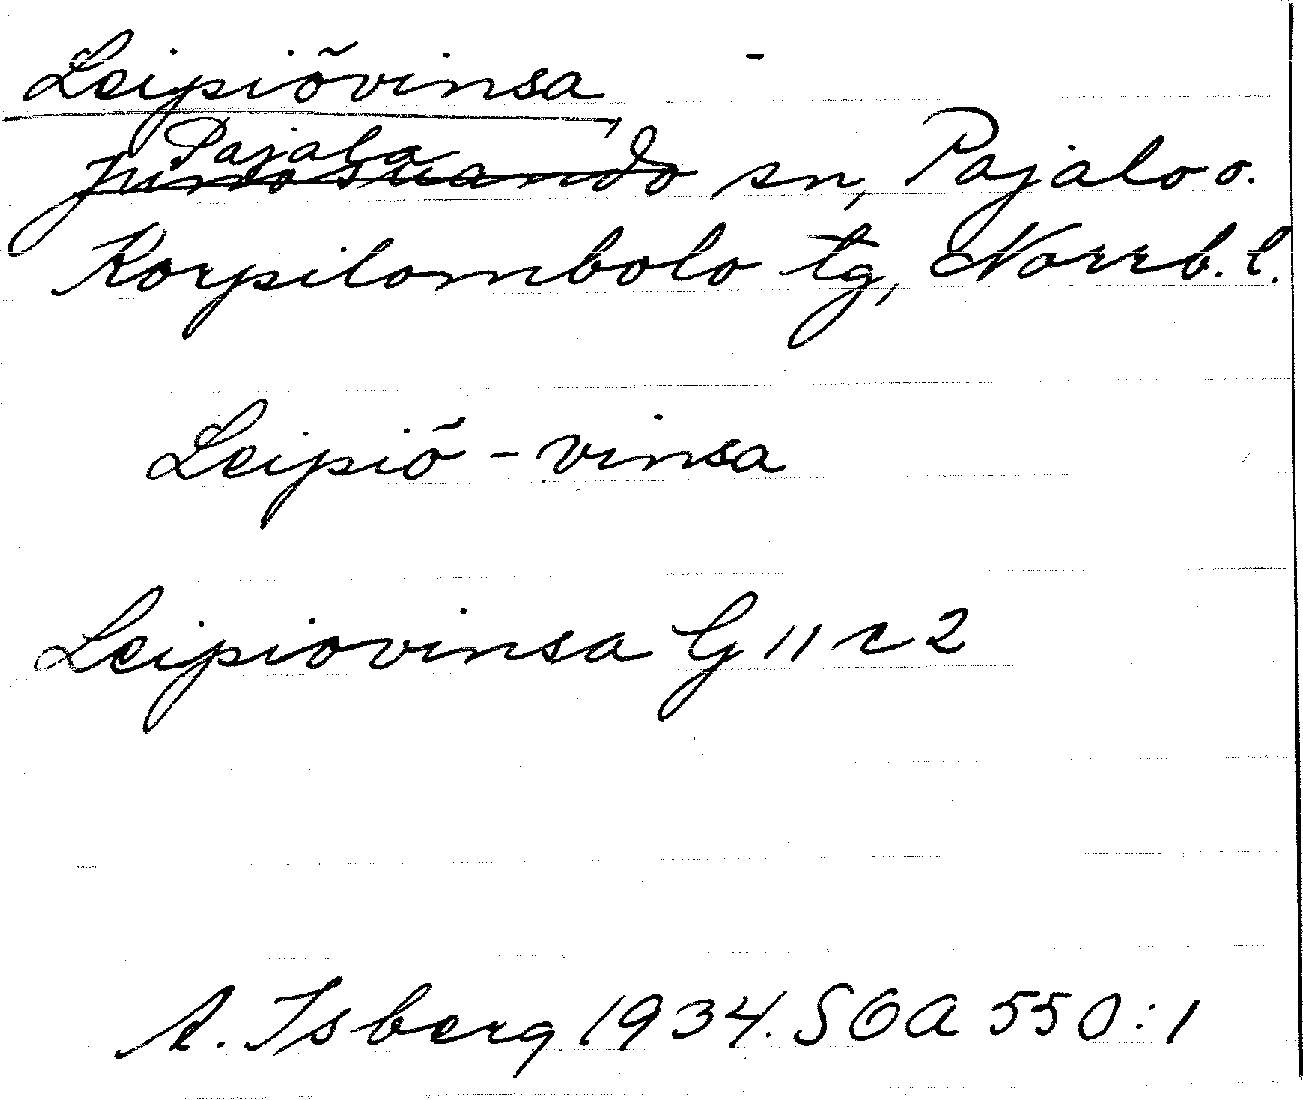 Leipiövinsa
Pajala
Junosuando sn, Pajala o.
Korpilombolo tg, Norrb. l.
Leipiö - vinsa
Leipiovinsa G 11 c 2
A. Isberg 1934. SOA 550:1